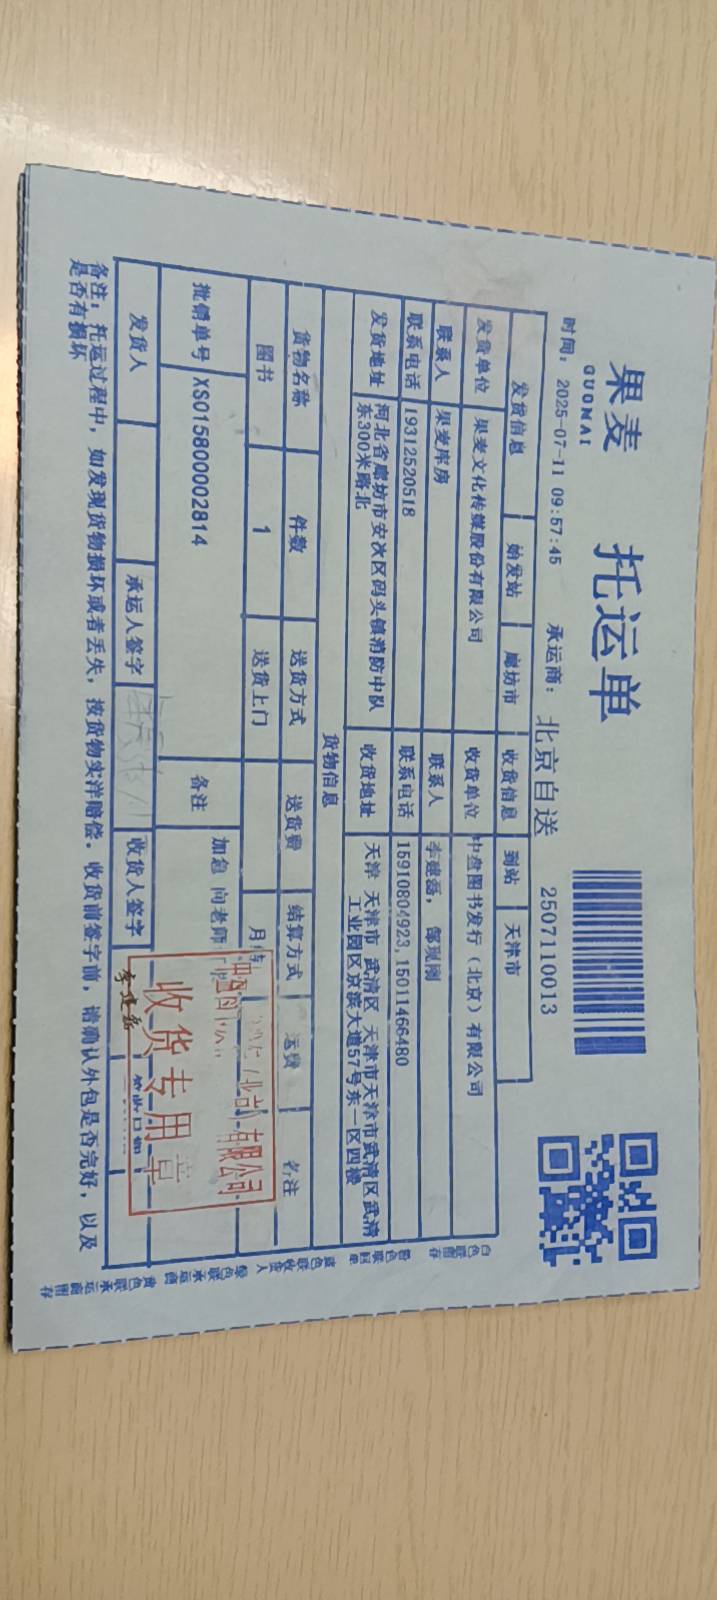 果麦
GUOMAI
托运单
时间: 2025-07-11 09:57:45 承运商: 北京自送 2507110013
发货信息 始发站 廊坊市 收货信息 到站 天津市
发货单位 果麦文化传媒股份有限公司 收货单位 中盘图书发行（北京）有限公司
联系人 果麦库房 联系人 李建磊,
联系电话 19312520518 联系电话 15910804923,15011466480
发货地址 河北省廊坊市安次区码头镇消防中队 收货地址 天津 天津市 武清区 天津市天津市武清区武清
东300米路北 工业园区京滨大道57号东一区四楼
货物信息
货物名称 件数 送货方式 送货费 结算方式 运费 备注
图书 1 送货上门 月结
批销单号 XS015800002814 备注 加急 向老师
发货人 承运人签字 收货人签字 李建磊
（北京）有限公司
收货专用章
备注: 托运过程中, 如发现货物损坏或者丢失, 按货物实洋赔偿. 收货前签字前, 请确认外包是否完好, 以及
是否有损坏
白色联留存
蓝色联收货人
绿色联承运商
黄色联承运商留存